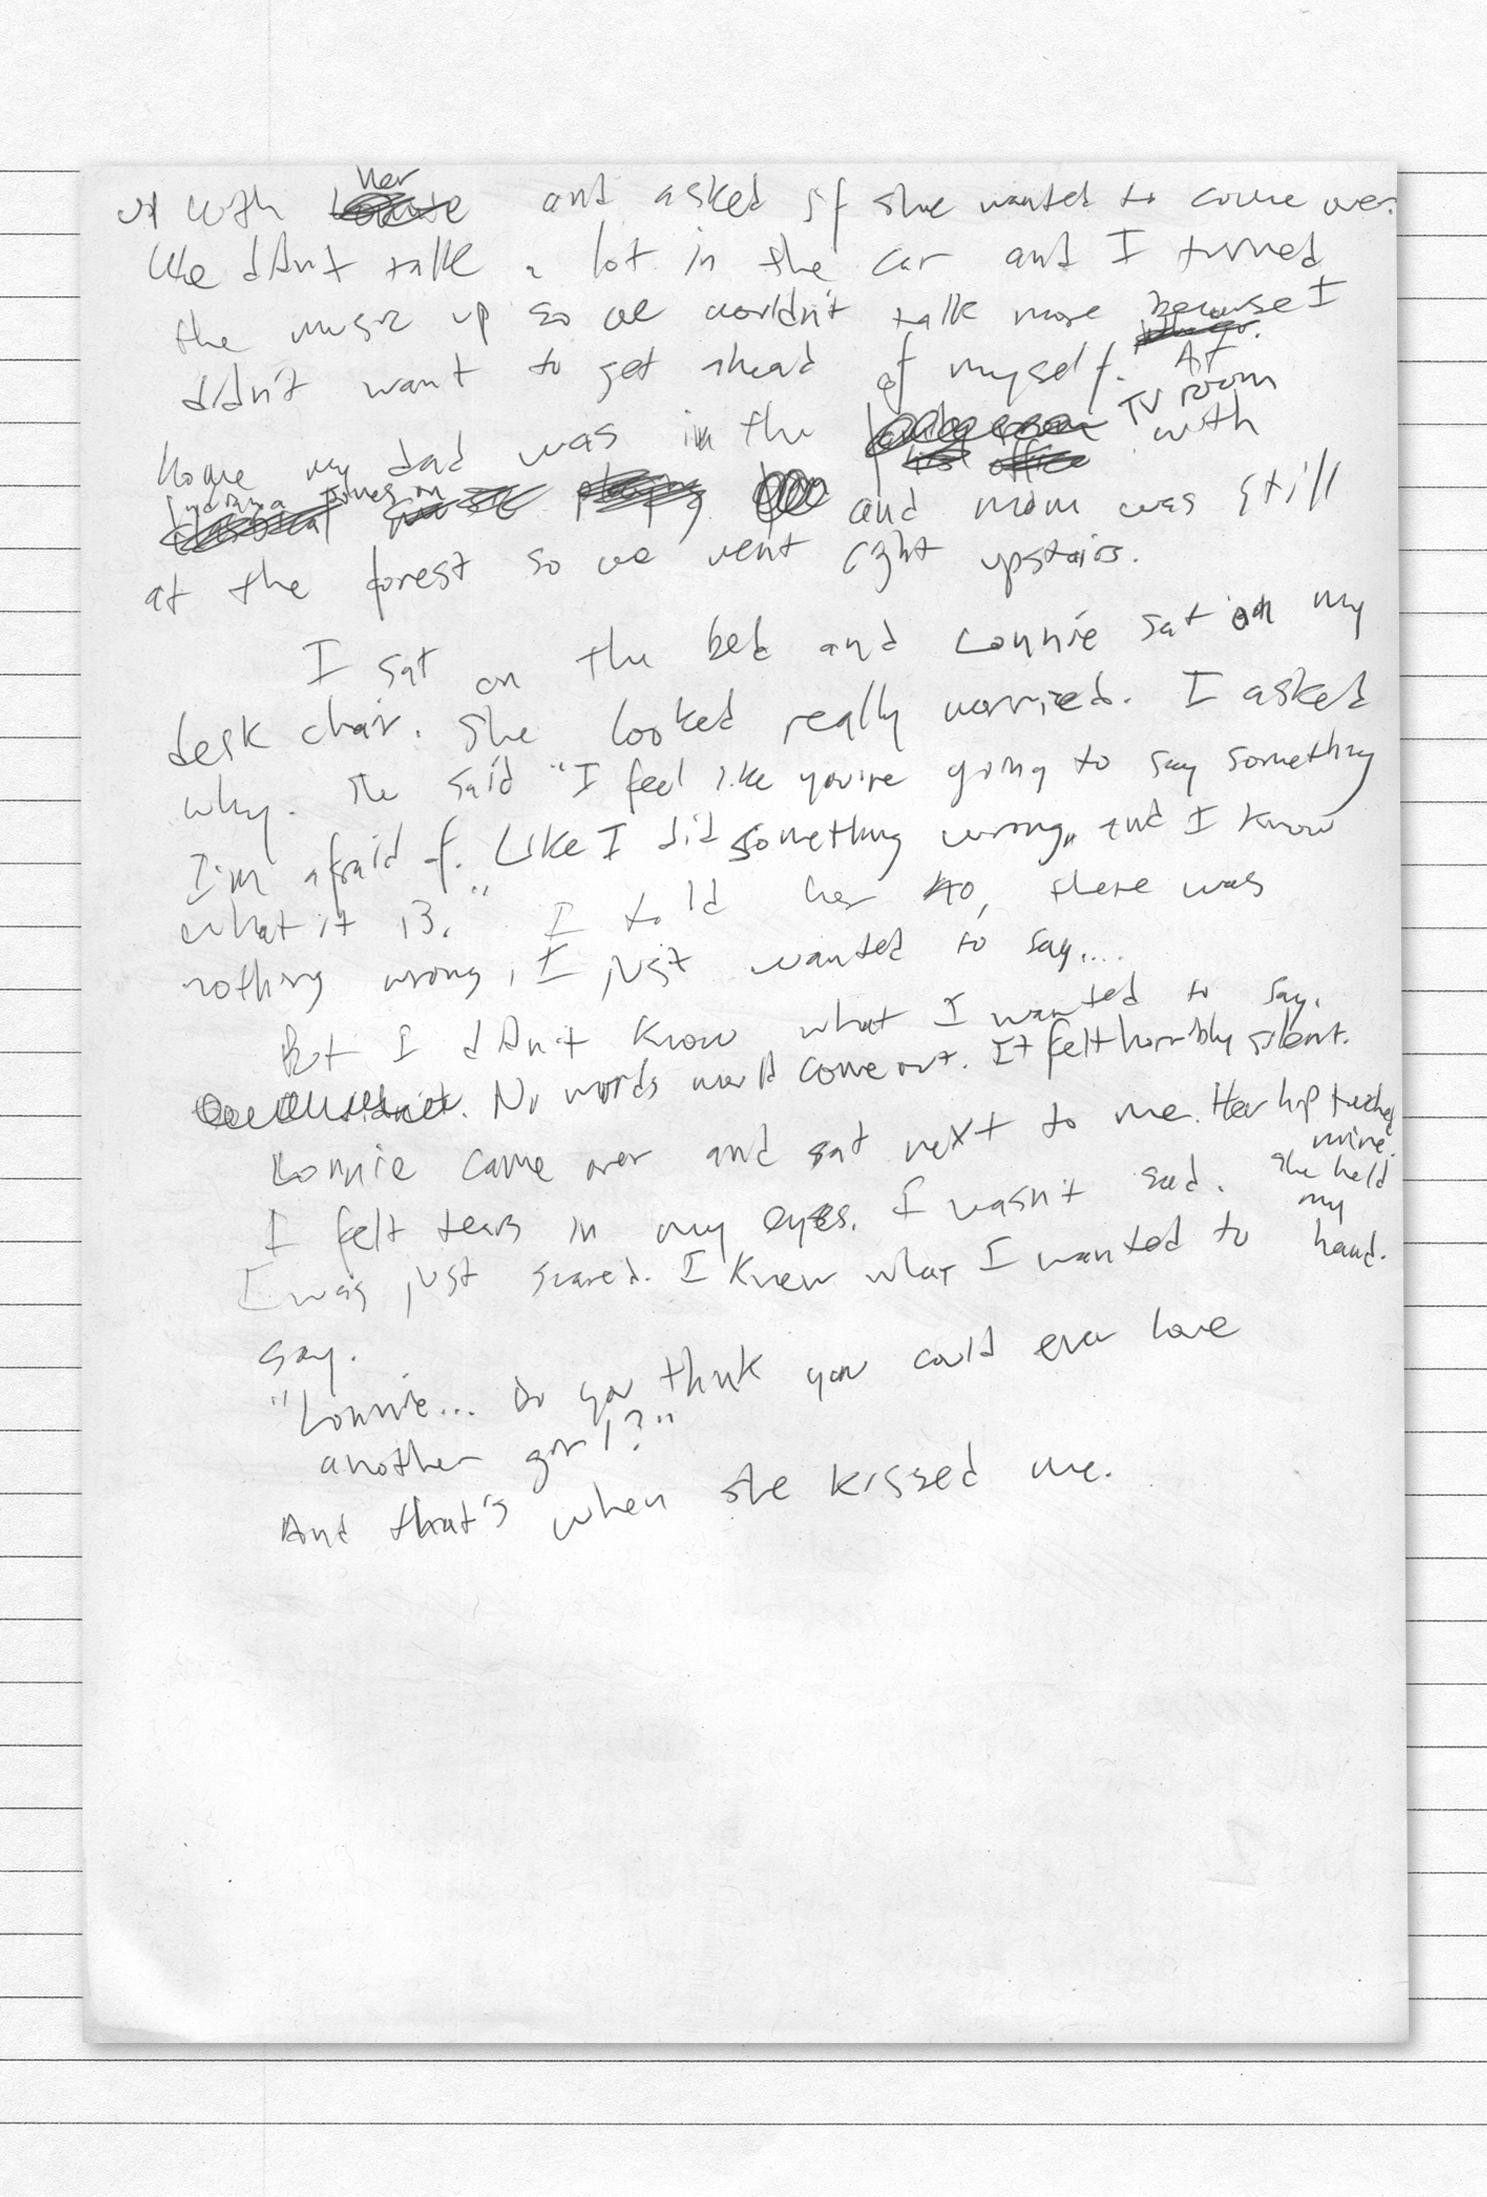 up with her and asked if she wanted to come over.
We didn't talk a lot in the car and I turned
the music up so we wouldn't talk more because I
didn't want to get ahead of myself. At
home my dad was in the TV room with
Indiana Jones on and mom was still
at the forest so we went right upstairs.
I sat on the bed and Lonnie sat on my
desk chair. She looked really worried. I asked
why. She said "I feel like you're going to say something
I'm afraid of. Like I did something wrong, and I know
what it is." I told her no, there was
nothing wrong, I just wanted to say....
But I didn't know what I wanted to say.
No words would come out. It felt horribly silent.
Lonnie came over and sat next to me. Her hip touched
mine.
I felt tears in my eyes. I wasn't sad. She held
my
I was just scared. I knew what I wanted to hand.
say.
"Lonnie... Do you think you could ever love
another girl?"
And that's when she kissed me.